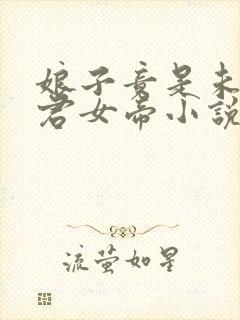 娘子竟是未
君女帝小說
流萤如星